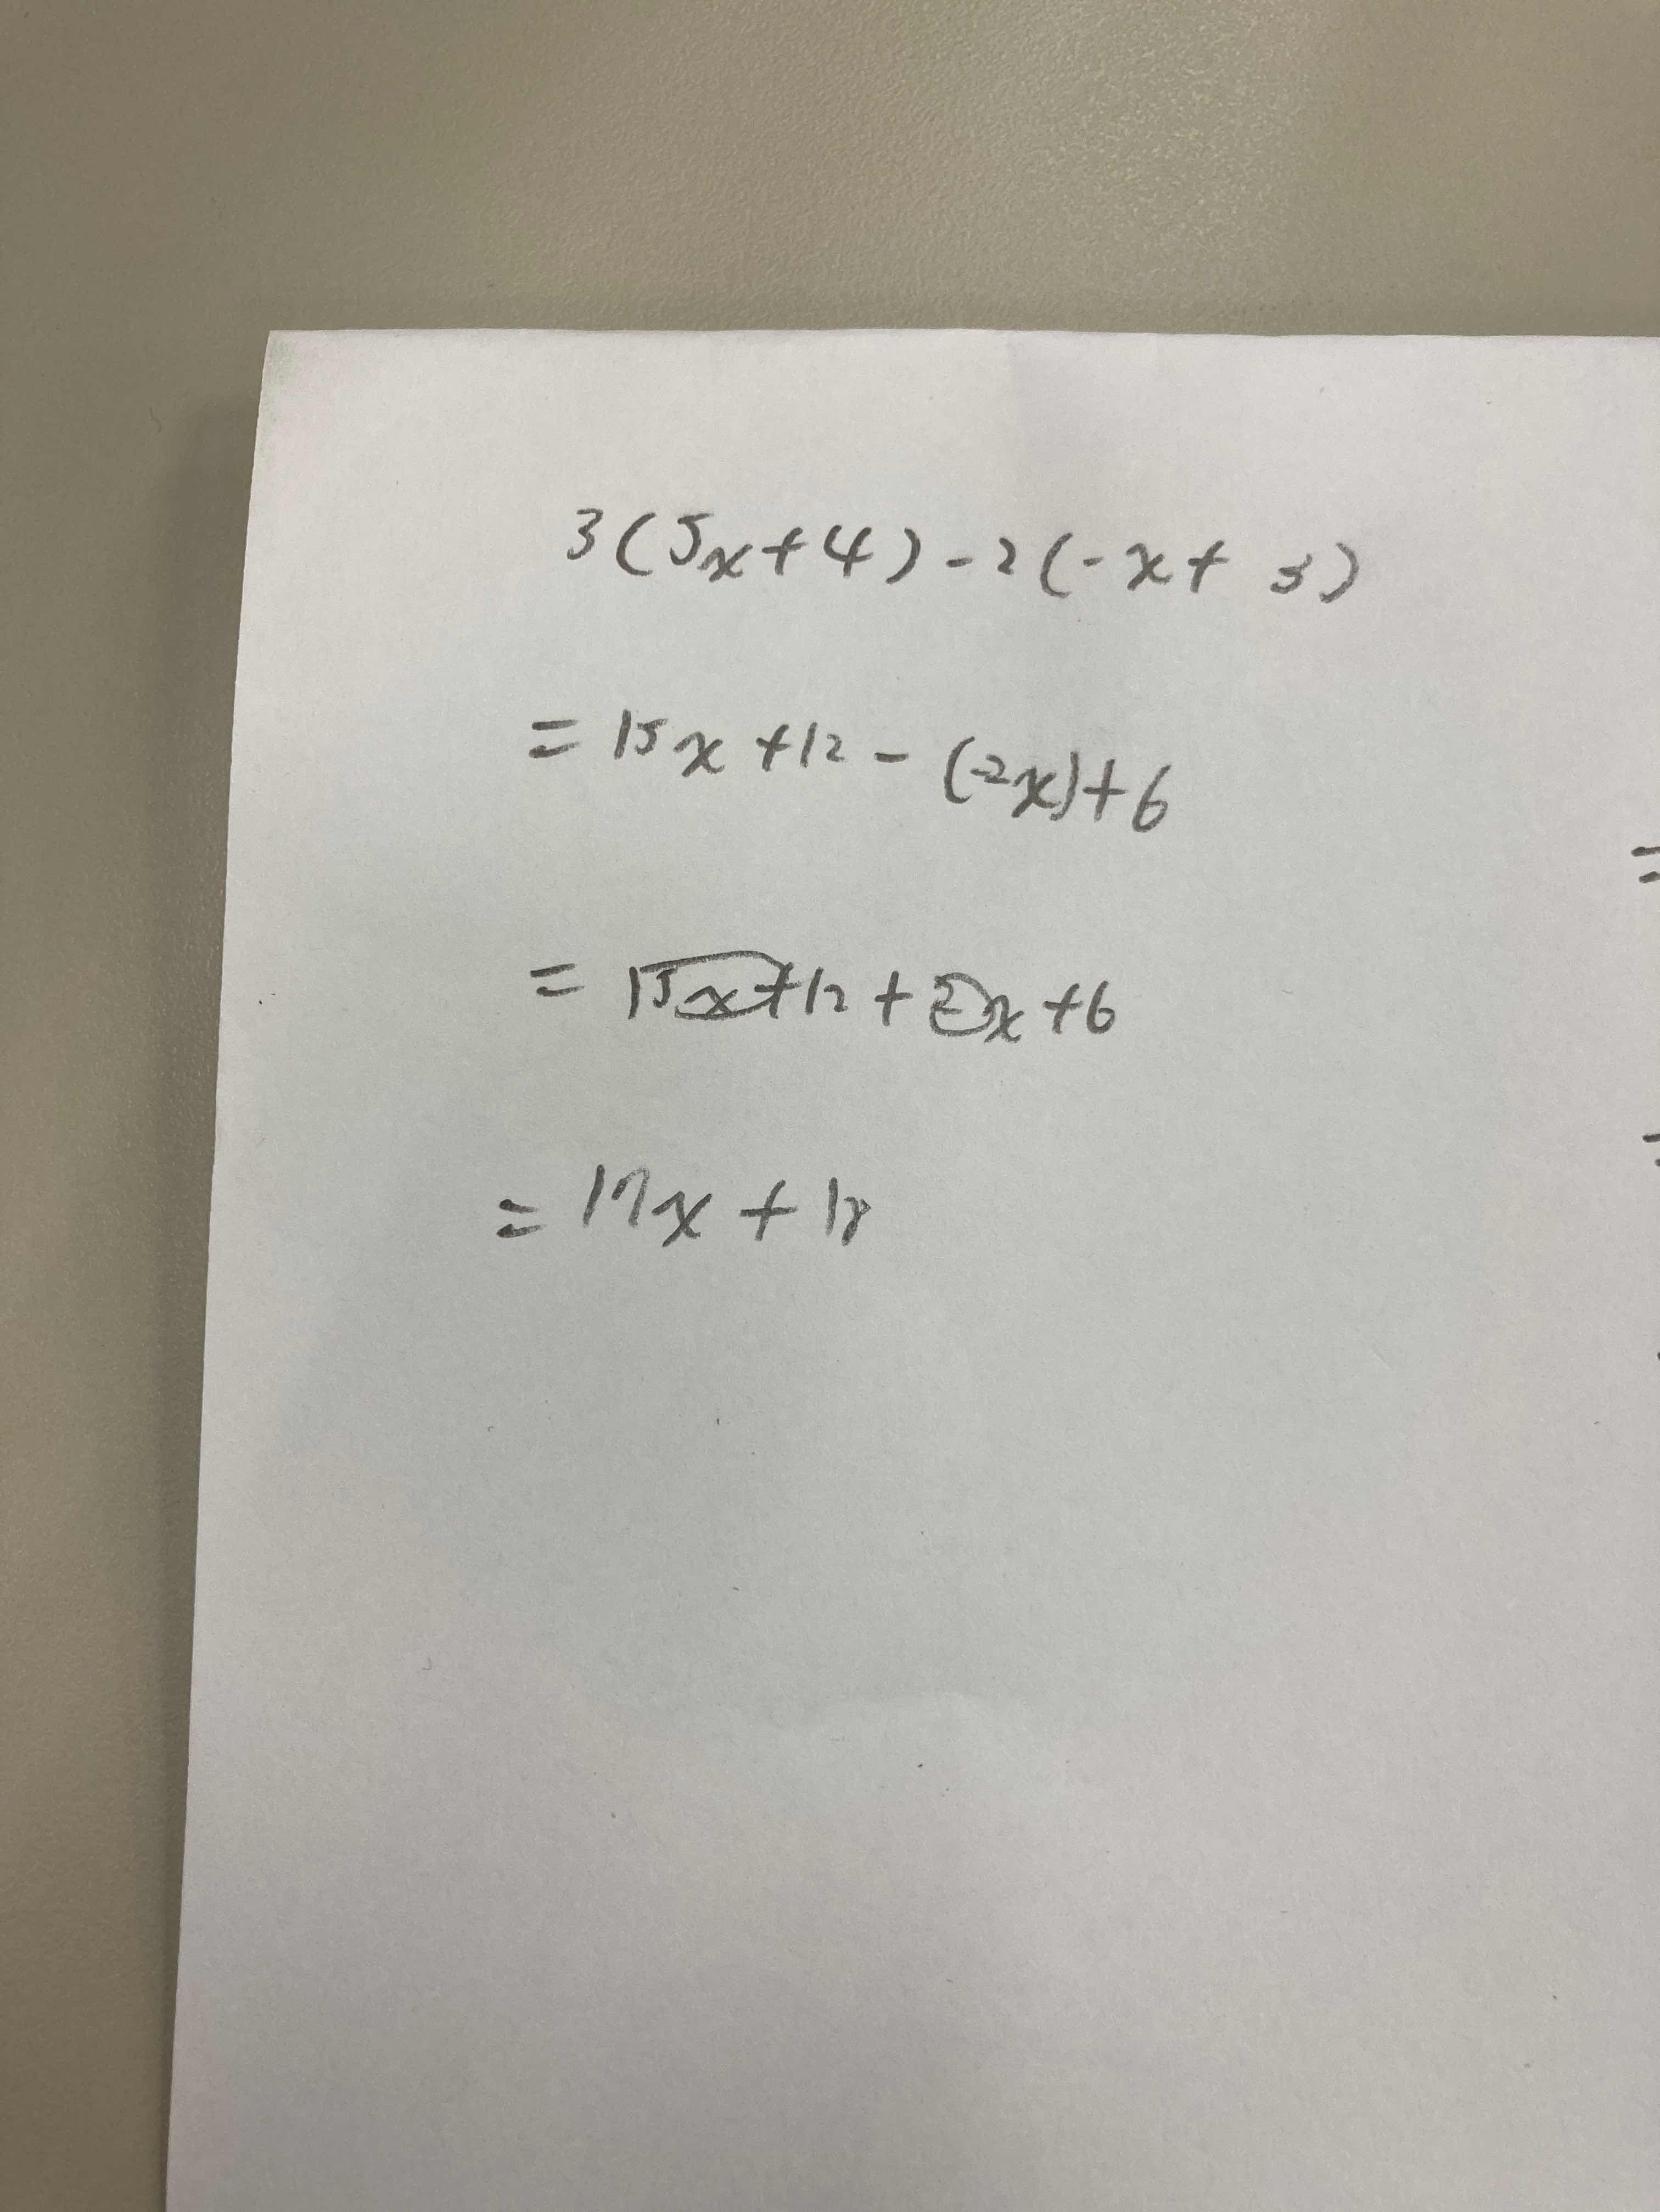 3(5x+4)-2(-x+3)
=15x+12-(-2x)+6
=15x+12+2x+6
=17x+18
=
=